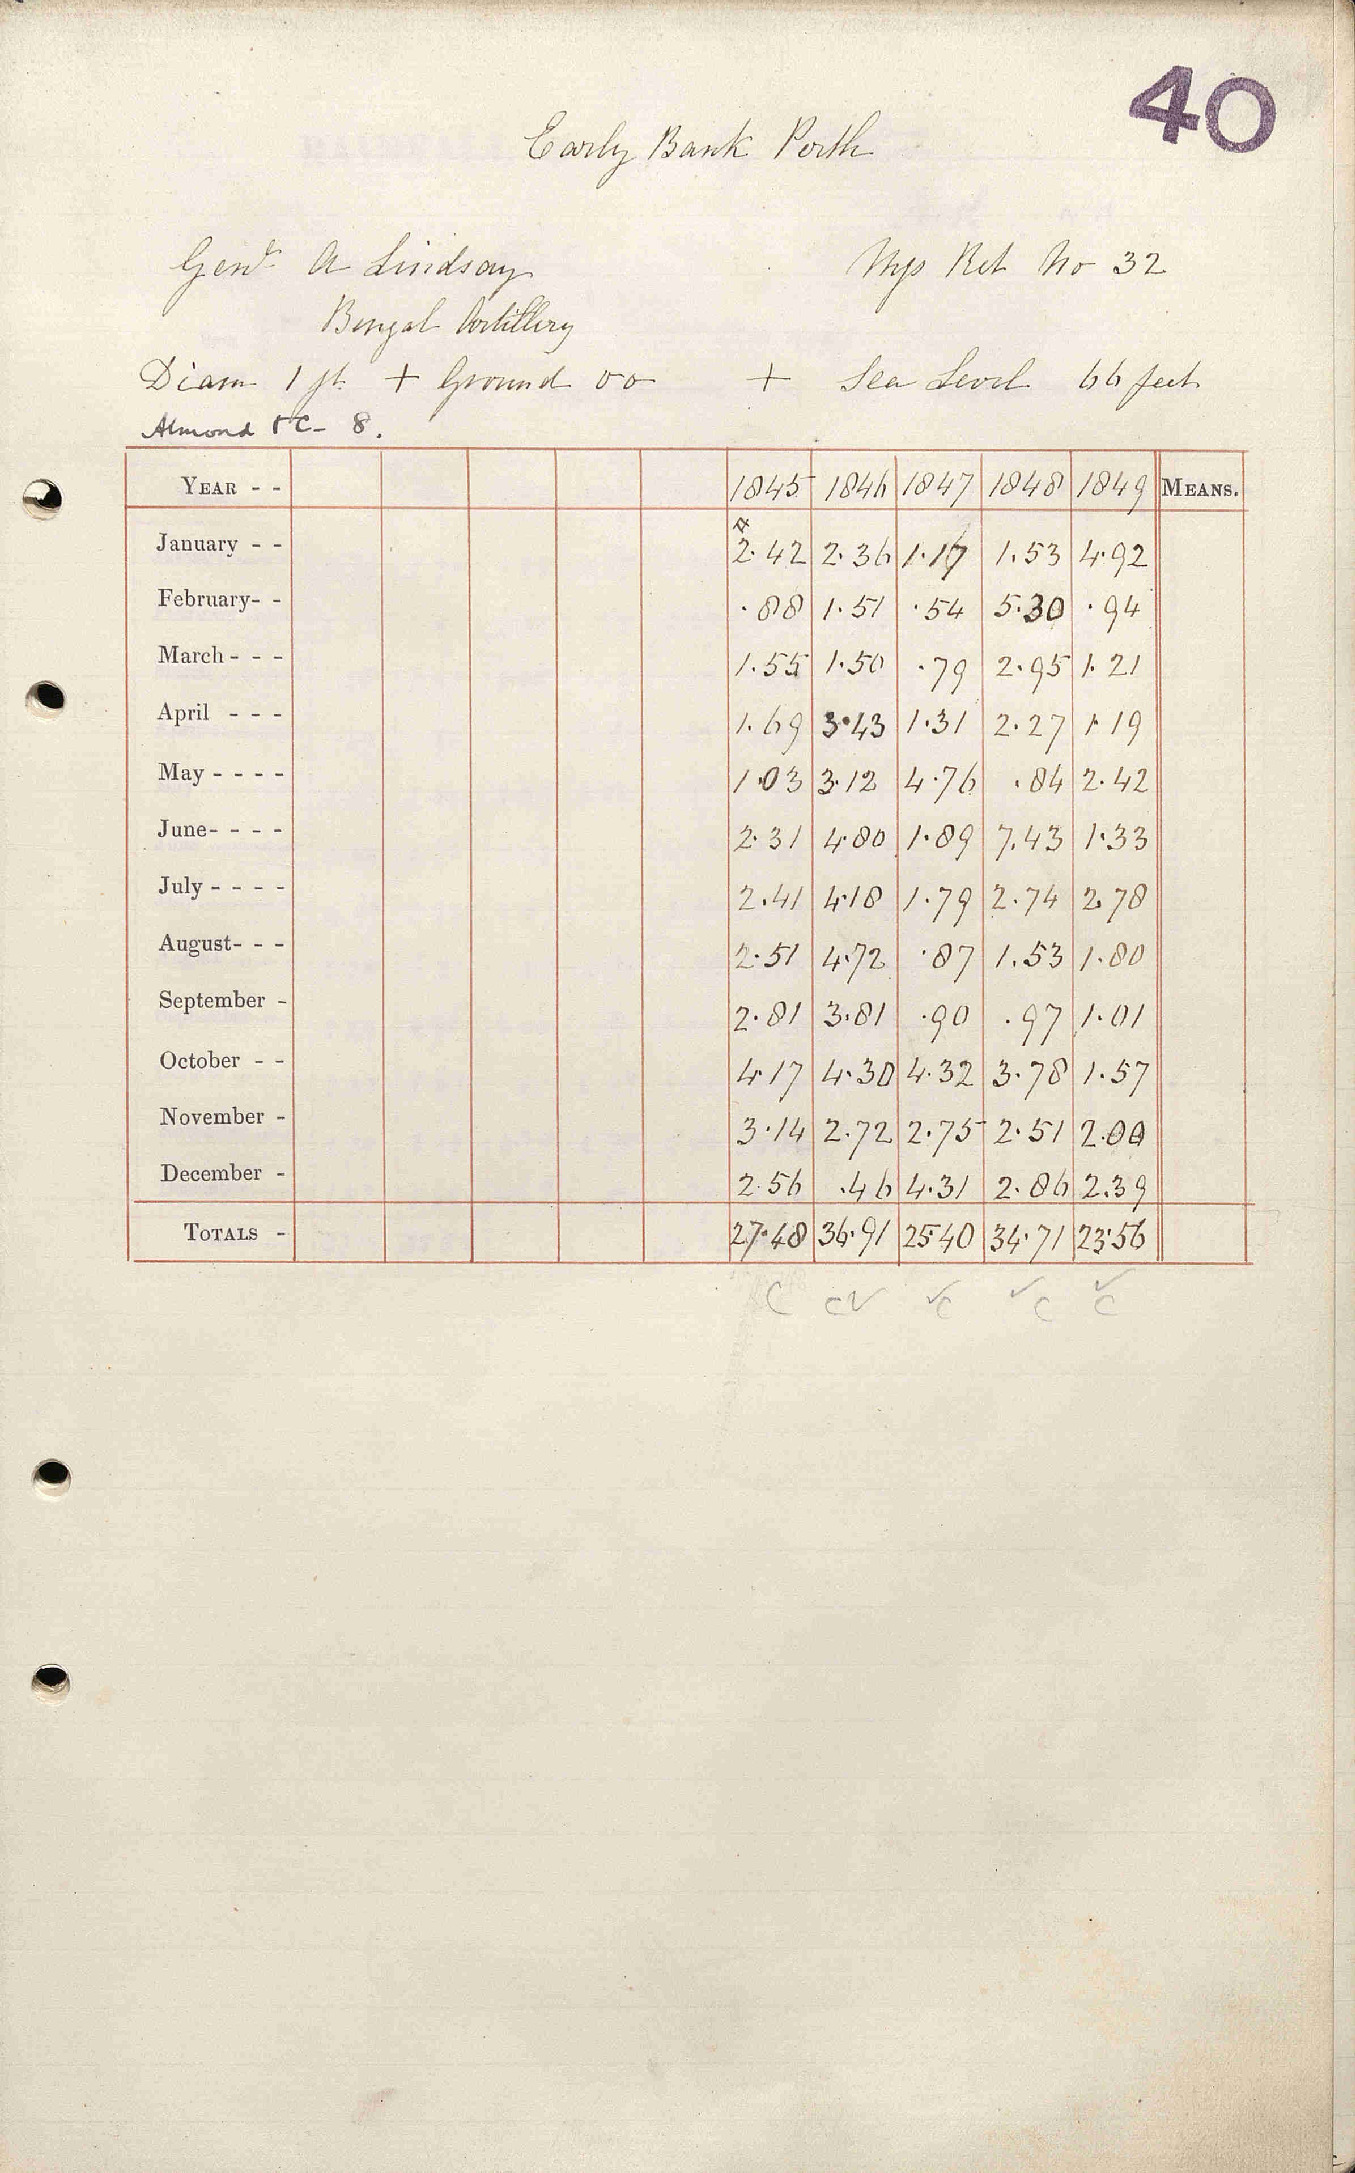 40
Early Bank Perth
Genl A Lindsay Myo Ret No 32
Bengal Artillery
Diam 1 ft + Ground 00 + Sea Level 66 feet
Almond 8.
YEAR - - 1845 1846 1847 1848 1849 MEANS.
January - - 2.42 2.36 1.17 1.53 4.92
February- - .88 1.51 .54 5.30 .94
March - - - 1.55 1.50 .79 2.95 1.21
April - - - 1.69 3.43 1.31 2.27 1.19
May - - - - 1.03 3.12 4.76 .84 2.42
June- - - - 2.31 4.80 1.89 7.43 1.33
July - - - - 2.41 4.18 1.79 2.74 2.78
August- - - 2.51 4.72 .87 1.53 1.80
September - 2.81 3.81 .90 .97 1.01
October - - 4.17 4.30 4.32 3.78 1.57
November - 3.14 2.72 2.75 2.51 2.00
December - 2.56 .46 4.31 2.86 2.39
TOTALS - 27.48 36.91 25.40 34.71 23.56
C C✓ ✓C ✓C ✓C